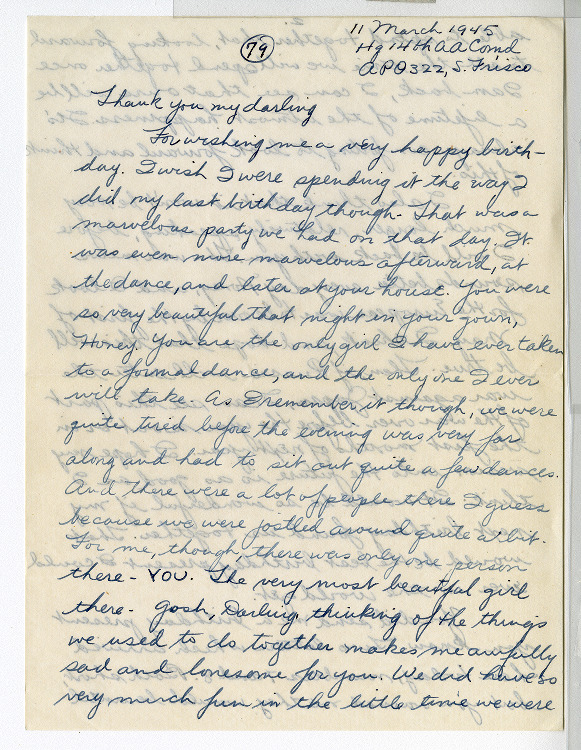 79
11 March 1945
Hq 14th AA Comd
APO 322, S. Frisco
Thank you my darling
For wishing me a very happy birth-
day. I wish I were spending it the way I
did my last birthday though. That was a
marvelous party we had on that day. It
was even more marvelous afterward, at
the dance, and later at your house. You were
so very beautiful that night in your gown,
Honey. You are the only girl I have ever taken
to a formal dance, and the only one I ever
will take. As I remember it though, we were
quite tired before the evening was very far
along and had to sit out quite a few dances.
And there were a lot of people there I guess
because we were jostled around quite a bit.
For me, though, there was only one person
there - YOU. The very most beautiful girl
there - Gosh, Darling thinking of the things
we used to do together makes me awfully
sad and lonesome for you. We did have so
very much fun in the little time we were